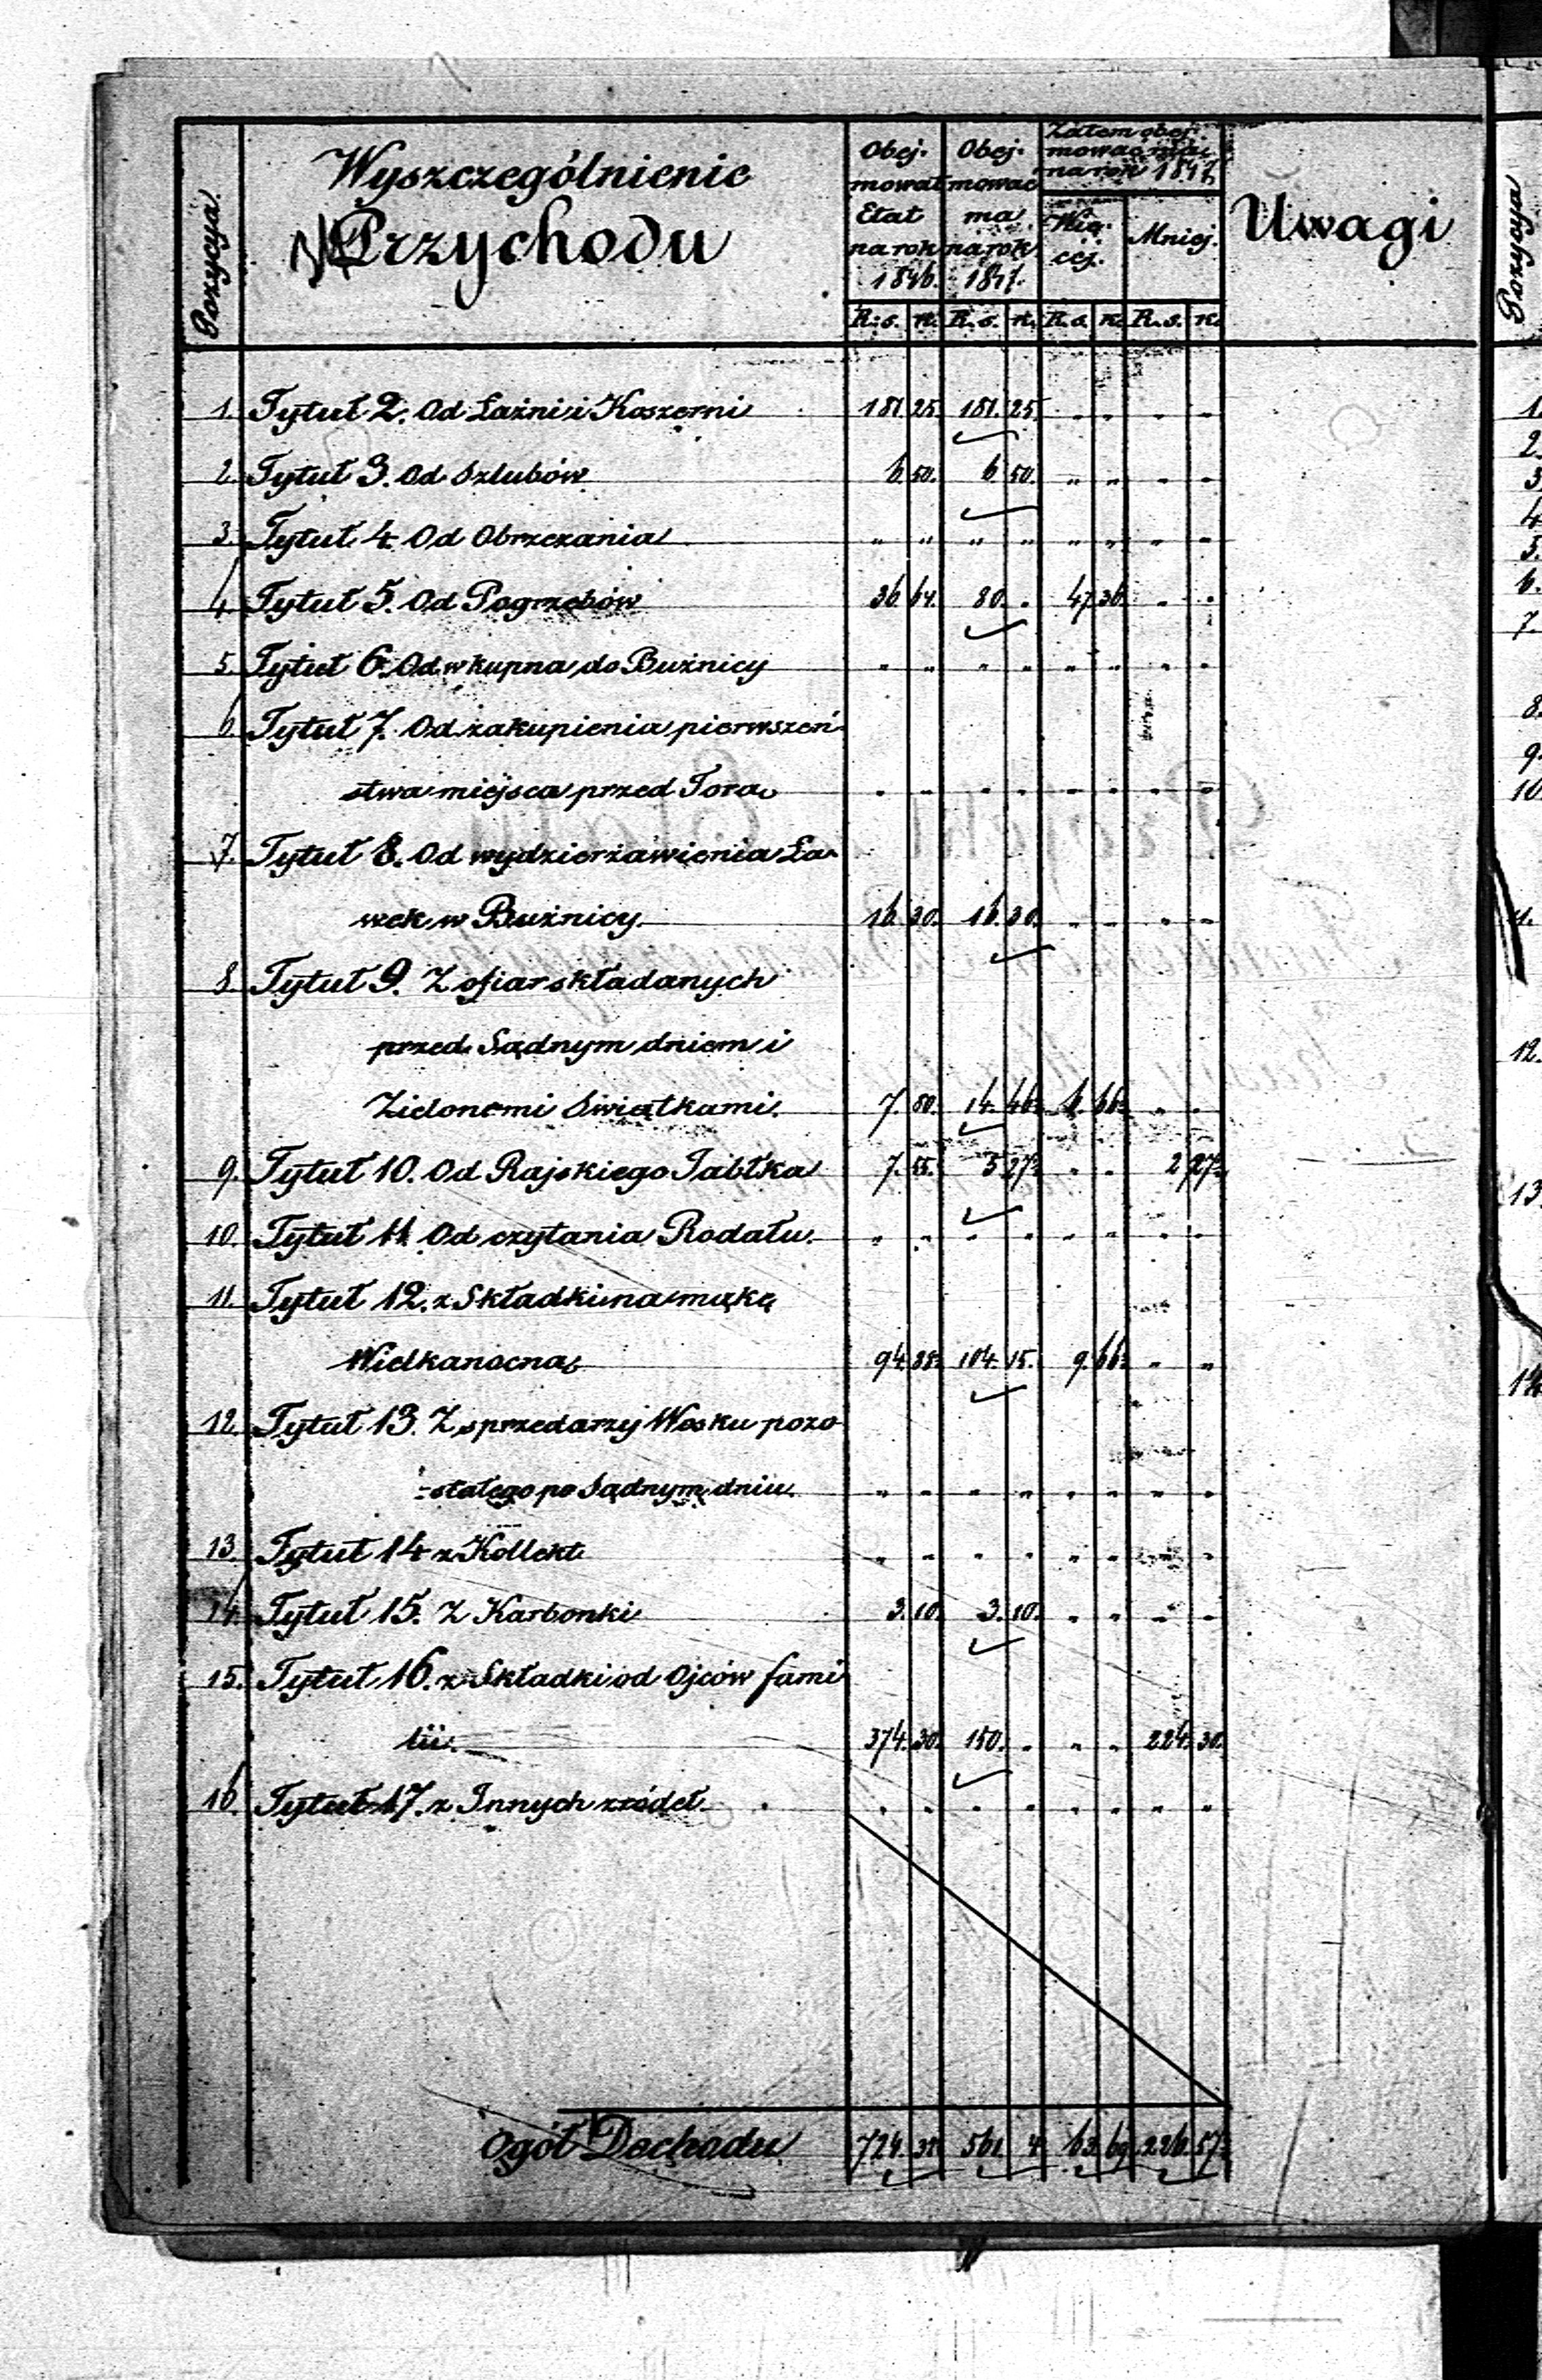 Pozycya.
Wyszczególnienie
Przychodu
Obej-
mował
Etat
na rok
1846.
Obej-
mować
ma
na rok
1847.
Zatem obej-
mować ma
na rok 1847.
Wię-
céj.
Mniej.
Uwagi
R:s. k. R.s. k. R.s. k. R.s. k.
1. Tytuł 2. Od Łaźni i Koszerni 181. 25. 181. 25. " " " "
2. Tytuł 3. Od Szlubów 6 50. 6 50. " " " "
3. Tytuł 4. Od Obrzezania " " " " " " " "
4. Tytuł 5. Od Pogrzebów 36 64. 80. " 47. 36. " "
5. Tytuł 6. Od wkupna do Buźnicy " " " " " " " "
6. Tytuł 7. Od zakupienia pierwszeń-
stwa miejsca przed Torą " " " " " " " "
7. Tytuł 8. Od wydzierżawienia Ła-
wek w Buźnicy. 16. 30. 16. 30. " " " "
8. Tytuł 9. Z ofiar składanych
przed Sądnym dniem i
Zielonemi Swiątkami. 7 80. 14. 46. 6. 66. " "
9. Tytuł 10. Od Rajskiego Jabłka 7. 55. 5 27. " " 2 27.
10. Tytuł 11. Od czytania Rodału. " " " " " " " "
11. Tytuł 12. z Składki na mąkę
Wielkanocną 94. 88. 104. 15. 9. 66. " "
12. Tytuł 13. Z sprzedarzy Wosku pozo-
stałego po Sądnym dniu. " " " " " " " "
13. Tytuł 14 z Kollekt " " " " " " " "
14. Tytuł 15. Z Karbonki 3. 10. 3. 10. " " " "
15. Tytuł 16. z Składki od Ojców fami
lii. 374. 30. 150. " " " 224. 30.
16. Tytuł 17. z Innych zródeł. " " " " " " " "
Ogół Dochodu 724. 561. 4. 63. 69. 226. 57.
Pozycya
1.
2.
3.
4.
5.
6.
7.
8.
9.
10.
11.
12.
13.
14.